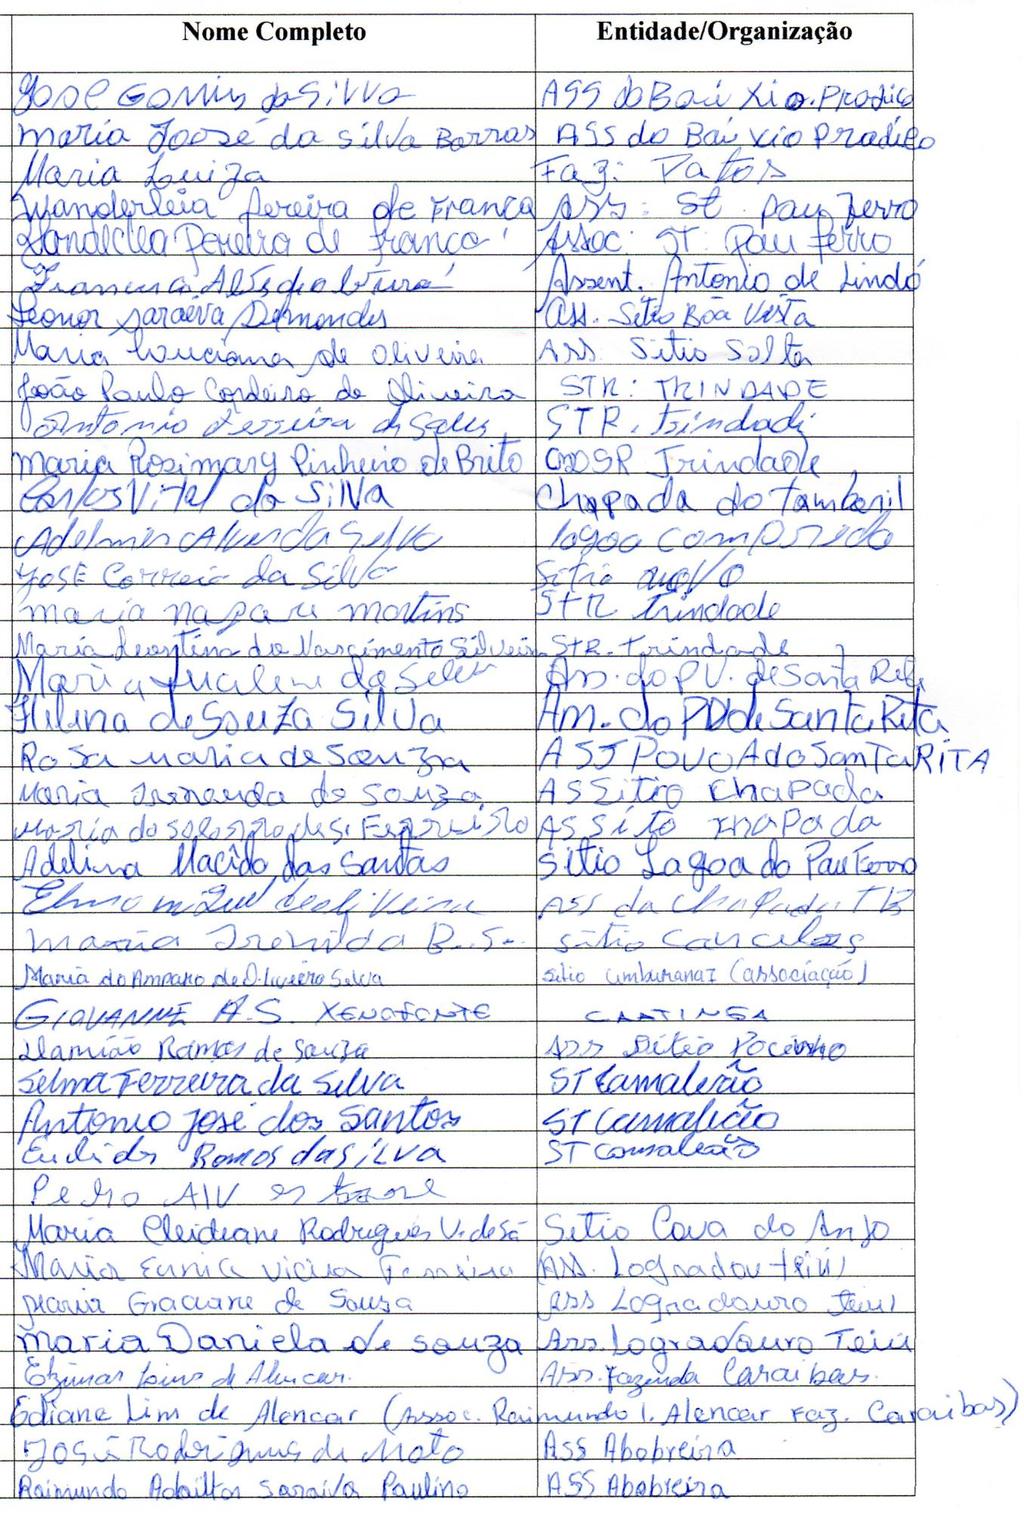 Nome Completo Entidade/Organização
José Gomis da Silva ASS do Baú Xio. Prodico
maria Joosé da silva Barras ASS do Bai vxio Pradico
Maria Luiza Faz: Patos
Wanderleia Pereira de França Ass: St. pau ferro
Pereira de França Assoc: ST: Pau ferro
Assent. Antonio de Lindó
Leonor saraiva Ass. Sitio Boa Vista
Maria Louciana de Oliveira ASS. Sitio Solta
João Paulo Cordeiro de Oliveira STR: TRINDADE
Antonio Ferreira de Sales STR. trindade
Maria Rosimary Pinheiro de Brito Trindade
Carlos Vitel da SilVa Chapada do tamboril
Alves da Silva lagoa comprida
JOSE Correia da Silva Sitio noVo
maria nazare martins STR trindade
Maria Leontina do Nascimento Silveira STR. trindade
Maria da Ass. do PV. de Santa Rita
Helena de Souza Silva Am. do PV de Santa Rita
Rosa maria de Souza ASS POVOAdo SanTa RITA
Maria de Souza ASSitio Chapada
Maria do ASSito
Adelina Macêdo das Santas Sitio Lagoa do Pau Ferro
de oliveira ASS da Chapada TB
maria Irenilda B. S. Sitio
Maria do Amparo de Oliveira Silva Sitio umburanaz (associação)
GIOVANNE A.S. XENOFONTE CAATINGA
Damião Ramos de Souza Ass Sitio Pocinho
Selma Ferreira da Silva ST Camaleão
Antonio José dos Santos ST Camaleão
Euclides Ramos da siLVA ST Camaleão
Pedro
Maria Cleideane Rodrigues V. de Sá Sitio Cova do Anjo
Maria Eunice Vieira Ferreira Ass. Logradou teiú
Maria Graciane de Souza Ass Logradouro Teiú
maria Daniela de souza Ass. Logradouro Teiú
Lins de Alencar. Ass. Fazenda Caraibas.
Ediane Lim de Alencar (Assoc. Raimundo l. Alencar Faz. Caraibas)
José Rodrigues de Ass Abobreira
Raimundo Adailton Saraiva Paulino ASS Abobreira